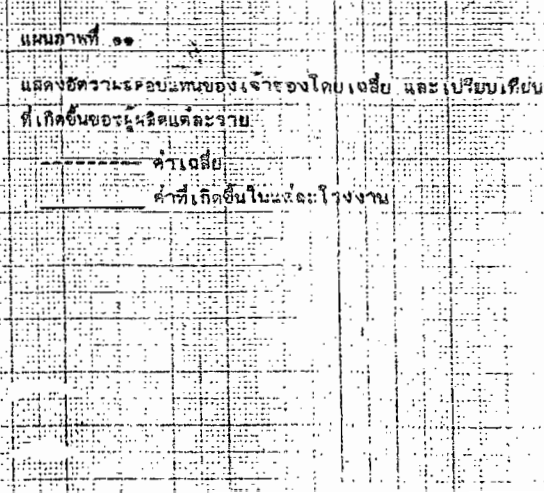 แผนภาพที่ ๑๑
แสดงอัตราผลตอบแทนของเจ้าของโดยเฉลี่ย และเปรียบเทียบ
ที่เกิดขึ้นของผู้ผลิตแต่ละราย
ค่าเฉลี่ย
ค่าที่เกิดขึ้นในแต่ละโรงงาน